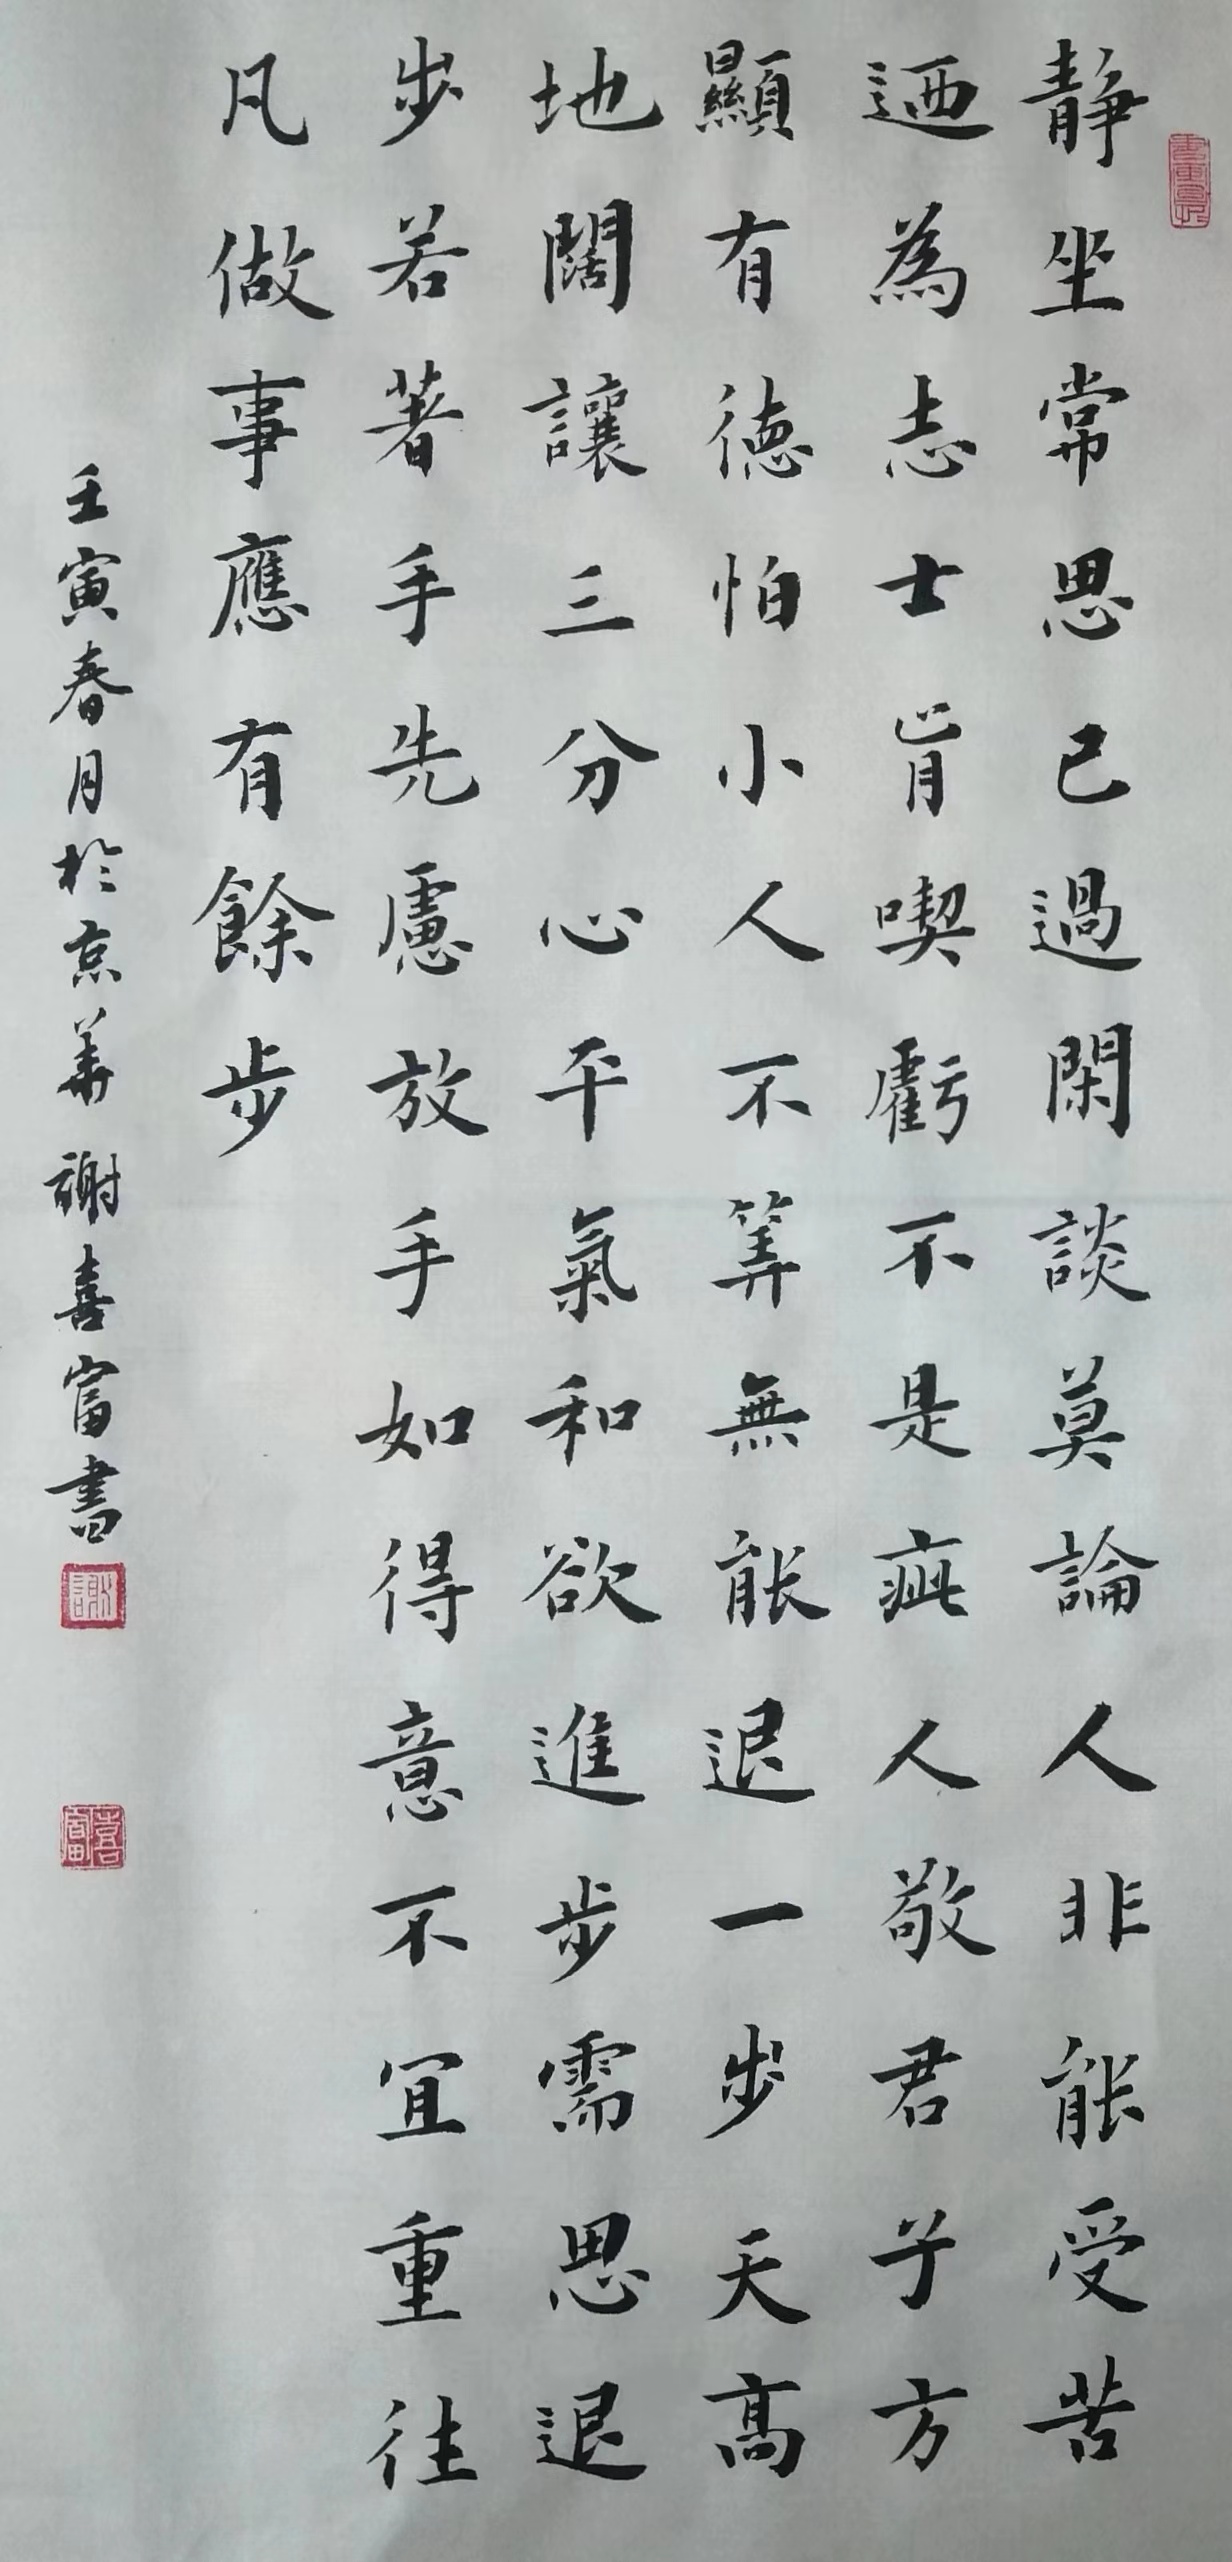 静坐常思己過閑談莫論人非能受苦
迺為志士肯喫虧不是癡人敬君子方
顯有徳怕小人不筭無能退一步天高
地闊讓三分心平氣和欲進步需思退
步若著手先慮放手如得意不宜重往
凡做事應有餘步
壬寅春月於京華謝喜富書
謝
喜富